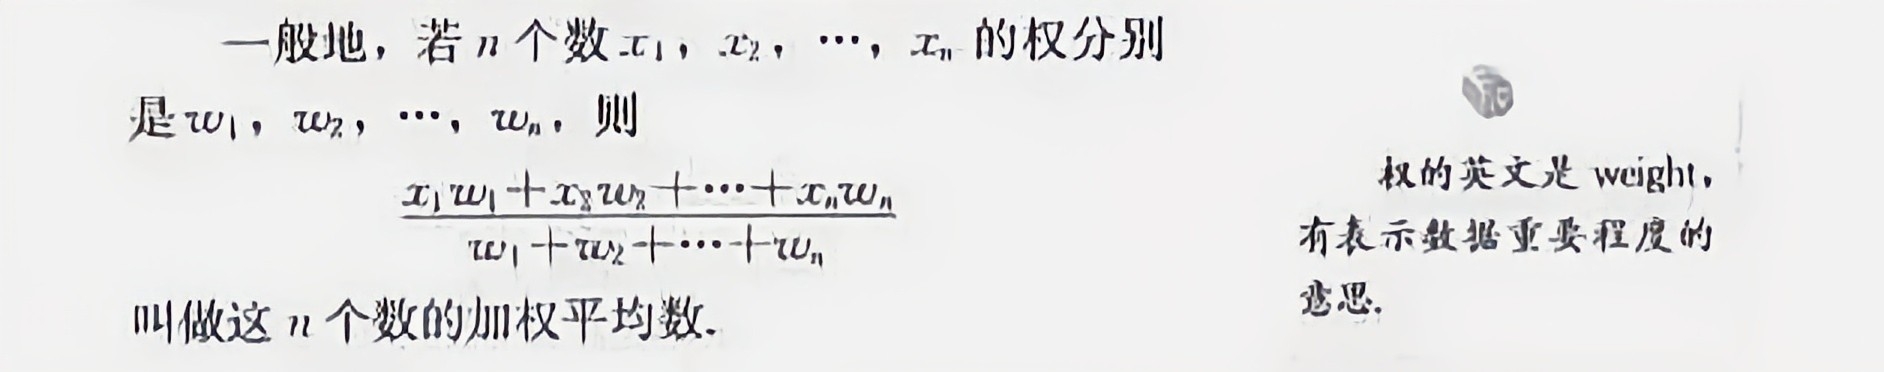 一般地，若 n 个数 x₁，x₂，…，xₙ 的权分别
是 w₁，w₂，…，wₙ，则
(x₁w₁+x₂w₂+…+xₙwₙ)/(w₁+w₂+…+wₙ)
叫做这 n 个数的加权平均数.
权的英文是 weight，
有表示数据重要程度的
意思.